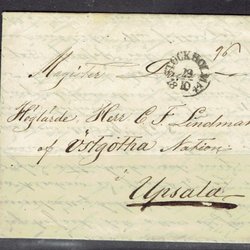 96
STOCKHOLM
29
10
Magister
Höglärde Herr C. F. Lindman
af Östgötha Nation.
Upsala.